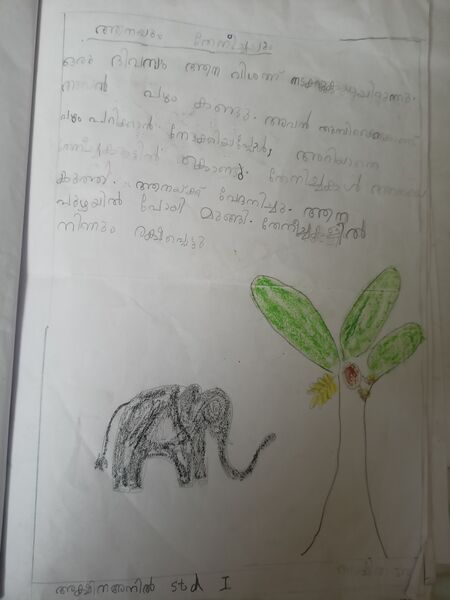 ആനയും തേനീച്ചയും
ഒരു ദിവസം ആന വിശന്ന് നടക്കുകയായിരുന്നു.
അവൻ പഴം കണ്ടു. അവൻ തുമ്പിക്കൈകൊണ്ട്
പഴം പറിക്കാൻ നോക്കിയപ്പോൾ, അറിയാതെ
കൊണ്ടു. തേനീച്ചകൾ ആനയെ
കുത്തി. ആനയ്ക്ക് വേദനിച്ചു. ആന
പുഴയിൽ പോയി മുങ്ങി. തേനീച്ചകളിൽ
നിന്നും രക്ഷപ്പെട്ടു
std I